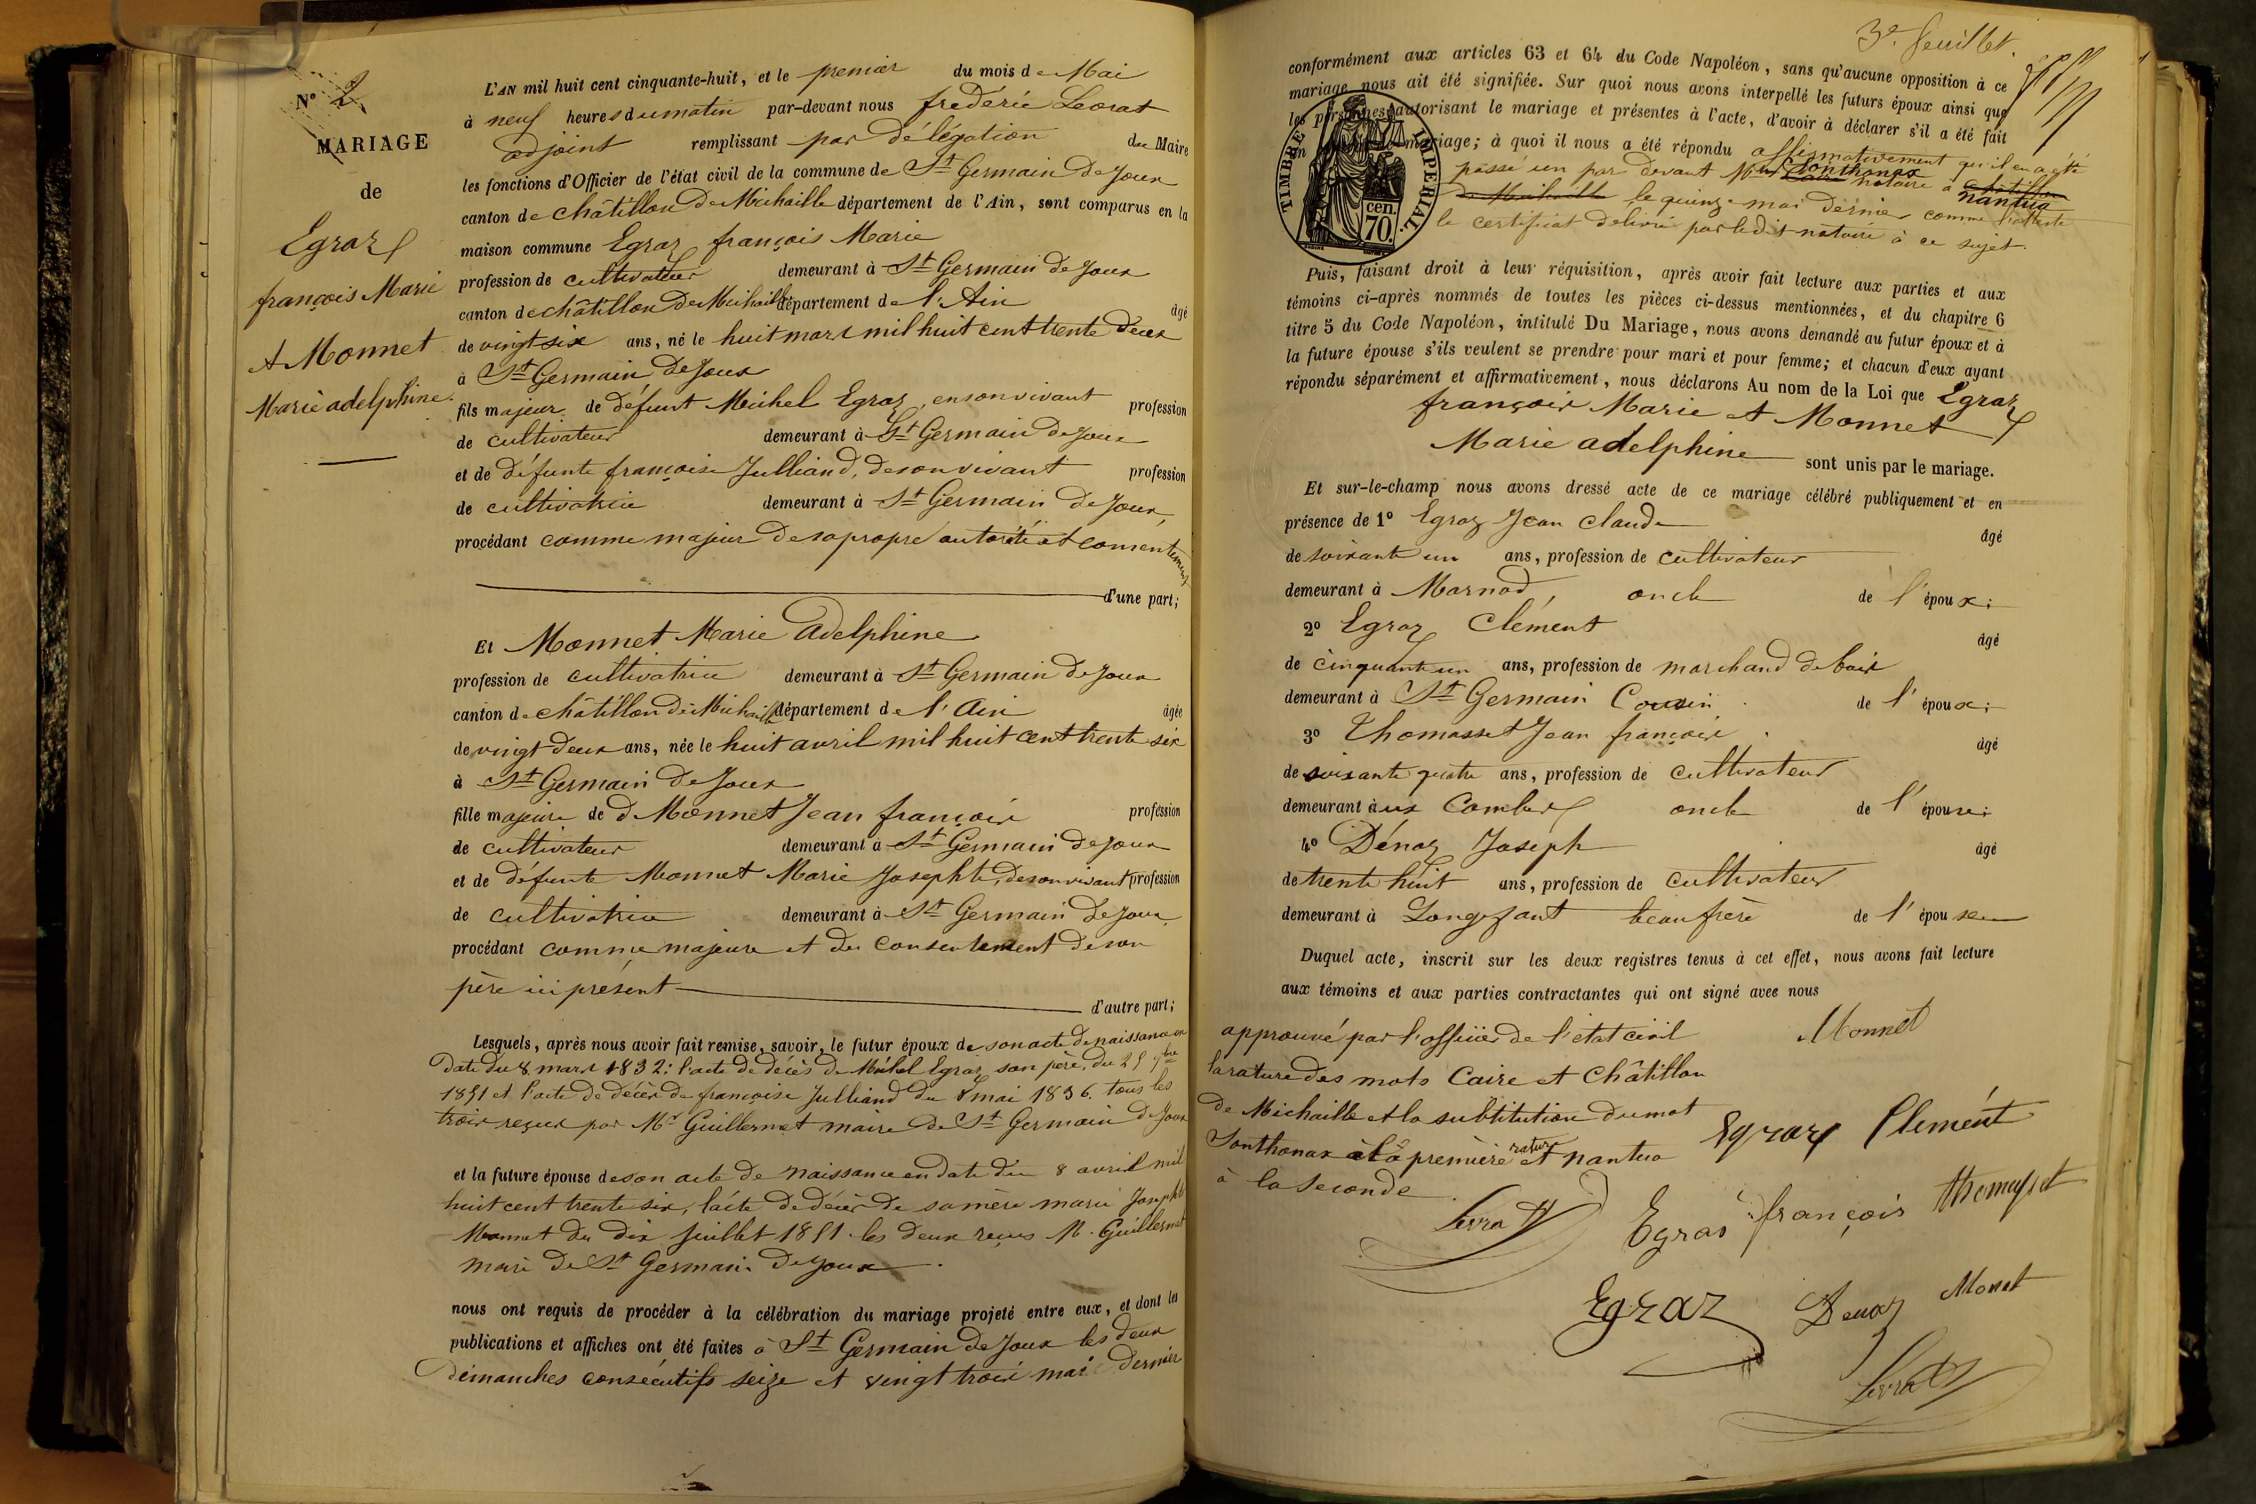 N° 2
MARIAGE
de
Egraz
françois Marie
et Monnet
Marie adelphine
L'AN mil huit cent cinquante-huit, et le premier du mois de Mai
à neuf heures du matin par-devant nous frédéric Levrat
adjoint remplissant par délégation du Maire
les fonctions d'Officier de l'état civil de la commune de St Germain de Joux
canton de châtillon de Michaille département de l'Ain, sont comparus en la
maison commune Egraz françois Marie
profession de cultivateur demeurant à St Germain de Joux
canton de châtillon de Michaille département de l'Ain âgé
de vingt six ans, né le huit mars mil huit cent trente deux
à St Germain de Joux
fils majeur de défunt Michel Egraz, en son vivant profession
de cultivateur demeurant à St Germain de Joux
et de défunte françoise Julliand, de son vivant profession
de cultivatrice demeurant à St Germain de Joux,
procédant comme majeur de sa propre autorité et consentement
d'une part;
Et Monnet Marie Adelphine
profession de cultivatrice demeurant à St Germain de Joux
canton de châtillon de Michaille département de l'Ain âgée
de vingt deux ans, née le huit avril mil huit cent trente six
à St Germain de Joux
fille majeure de d Monnet Jean françois profession
de cultivateur demeurant à St Germain de Joux
et de défunte Monnet Marie Josephte, de son vivant profession
de cultivatrice demeurant à St Germain de Joux
procédant comme majeure et du consentement de son
père ici présent d'autre part;
Lesquels, après nous avoir fait remise, savoir, le futur époux de son acte de naissance en
date du 8 mars 1832: l'acte de décès de Michel Egraz son père, du 25 9bre
1851 et l'acte de décès de françoise Julliand du 8 mai 1836. tous les
trois reçus par Mr Guillermet maire de St Germain de Joux
et la future épouse de son acte de naissance en date du 8 avril mil
huit cent trente six, l'acte de décès de sa mère marie Josephte
Monnet du dix juillet 1851. les deux reçus M. Guillermet
maire de St Germain de Joux.
nous ont requis de procéder à la célébration du mariage projeté entre eux, et dont les
publications et affiches ont été faites à St Germain de Joux les deux
dimanches consécutifs seize et vingt trois mai dernier
3e feuillet.
conformément aux articles 63 et 64 du Code Napoléon, sans qu'aucune opposition à ce
mariage nous ait été signifiée. Sur quoi nous avons interpellé les futurs époux ainsi que
les personnes autorisant le mariage et présentes à l'acte, d'avoir à déclarer s'il a été fait
un mariage; à quoi il nous a été répondu affirmativement qu'il en a été
passé un par devant Mtre Caire Sonthonax notaire à Châtillon
de Michaille nantua le quinze mai dernier comme l'atteste
le certificat délivré par le dit notaire à ce sujet.
TIMBRE IMPERIAL
70 cen.
Puis, faisant droit à leur réquisition, après avoir fait lecture aux parties et aux
témoins ci-après nommés de toutes les pièces ci-dessus mentionnées, et du chapitre 6
titre 5 du Code Napoléon, intitulé Du Mariage, nous avons demandé au futur époux et à
la future épouse s'ils veulent se prendre pour mari et pour femme; et chacun d'eux ayant
répondu séparément et affirmativement, nous déclarons Au nom de la Loi que Egraz
françois Marie et Monnet
Marie adelphine sont unis par le mariage.
Et sur-le-champ nous avons dressé acte de ce mariage célébré publiquement et en
présence de 1° Egraz Jean Claude âgé
de soixante un ans, profession de cultivateur
demeurant à Marnod, oncle de l'époux;
2° Egraz Clément âgé
de cinquante un ans, profession de marchand de bois
demeurant à St Germain Cousin de l'époux;
3° Thomasset Jean françois. âgé
de soixante quatre ans, profession de cultivateur
demeurant aux Combes oncle de l'épouse;
4° Dénaz Joseph âgé
de trente huit ans, profession de cultivateur
demeurant à Longefant beaufrère de l'épouse
Duquel acte, inscrit sur les deux registres tenus à cet effet, nous avons fait lecture
aux témoins et aux parties contractantes qui ont signé avec nous
approuvé par l'officier de l'état civil
la rature des mots Caire et Châtillon
de Michaille et la subtitution du mot
Sonthonax à la première rature et nantua
à la seconde
Monnet
Egraz Clément
Levrat
Egraz françois thomasset
Egraz
Denaz Monet
Levrat